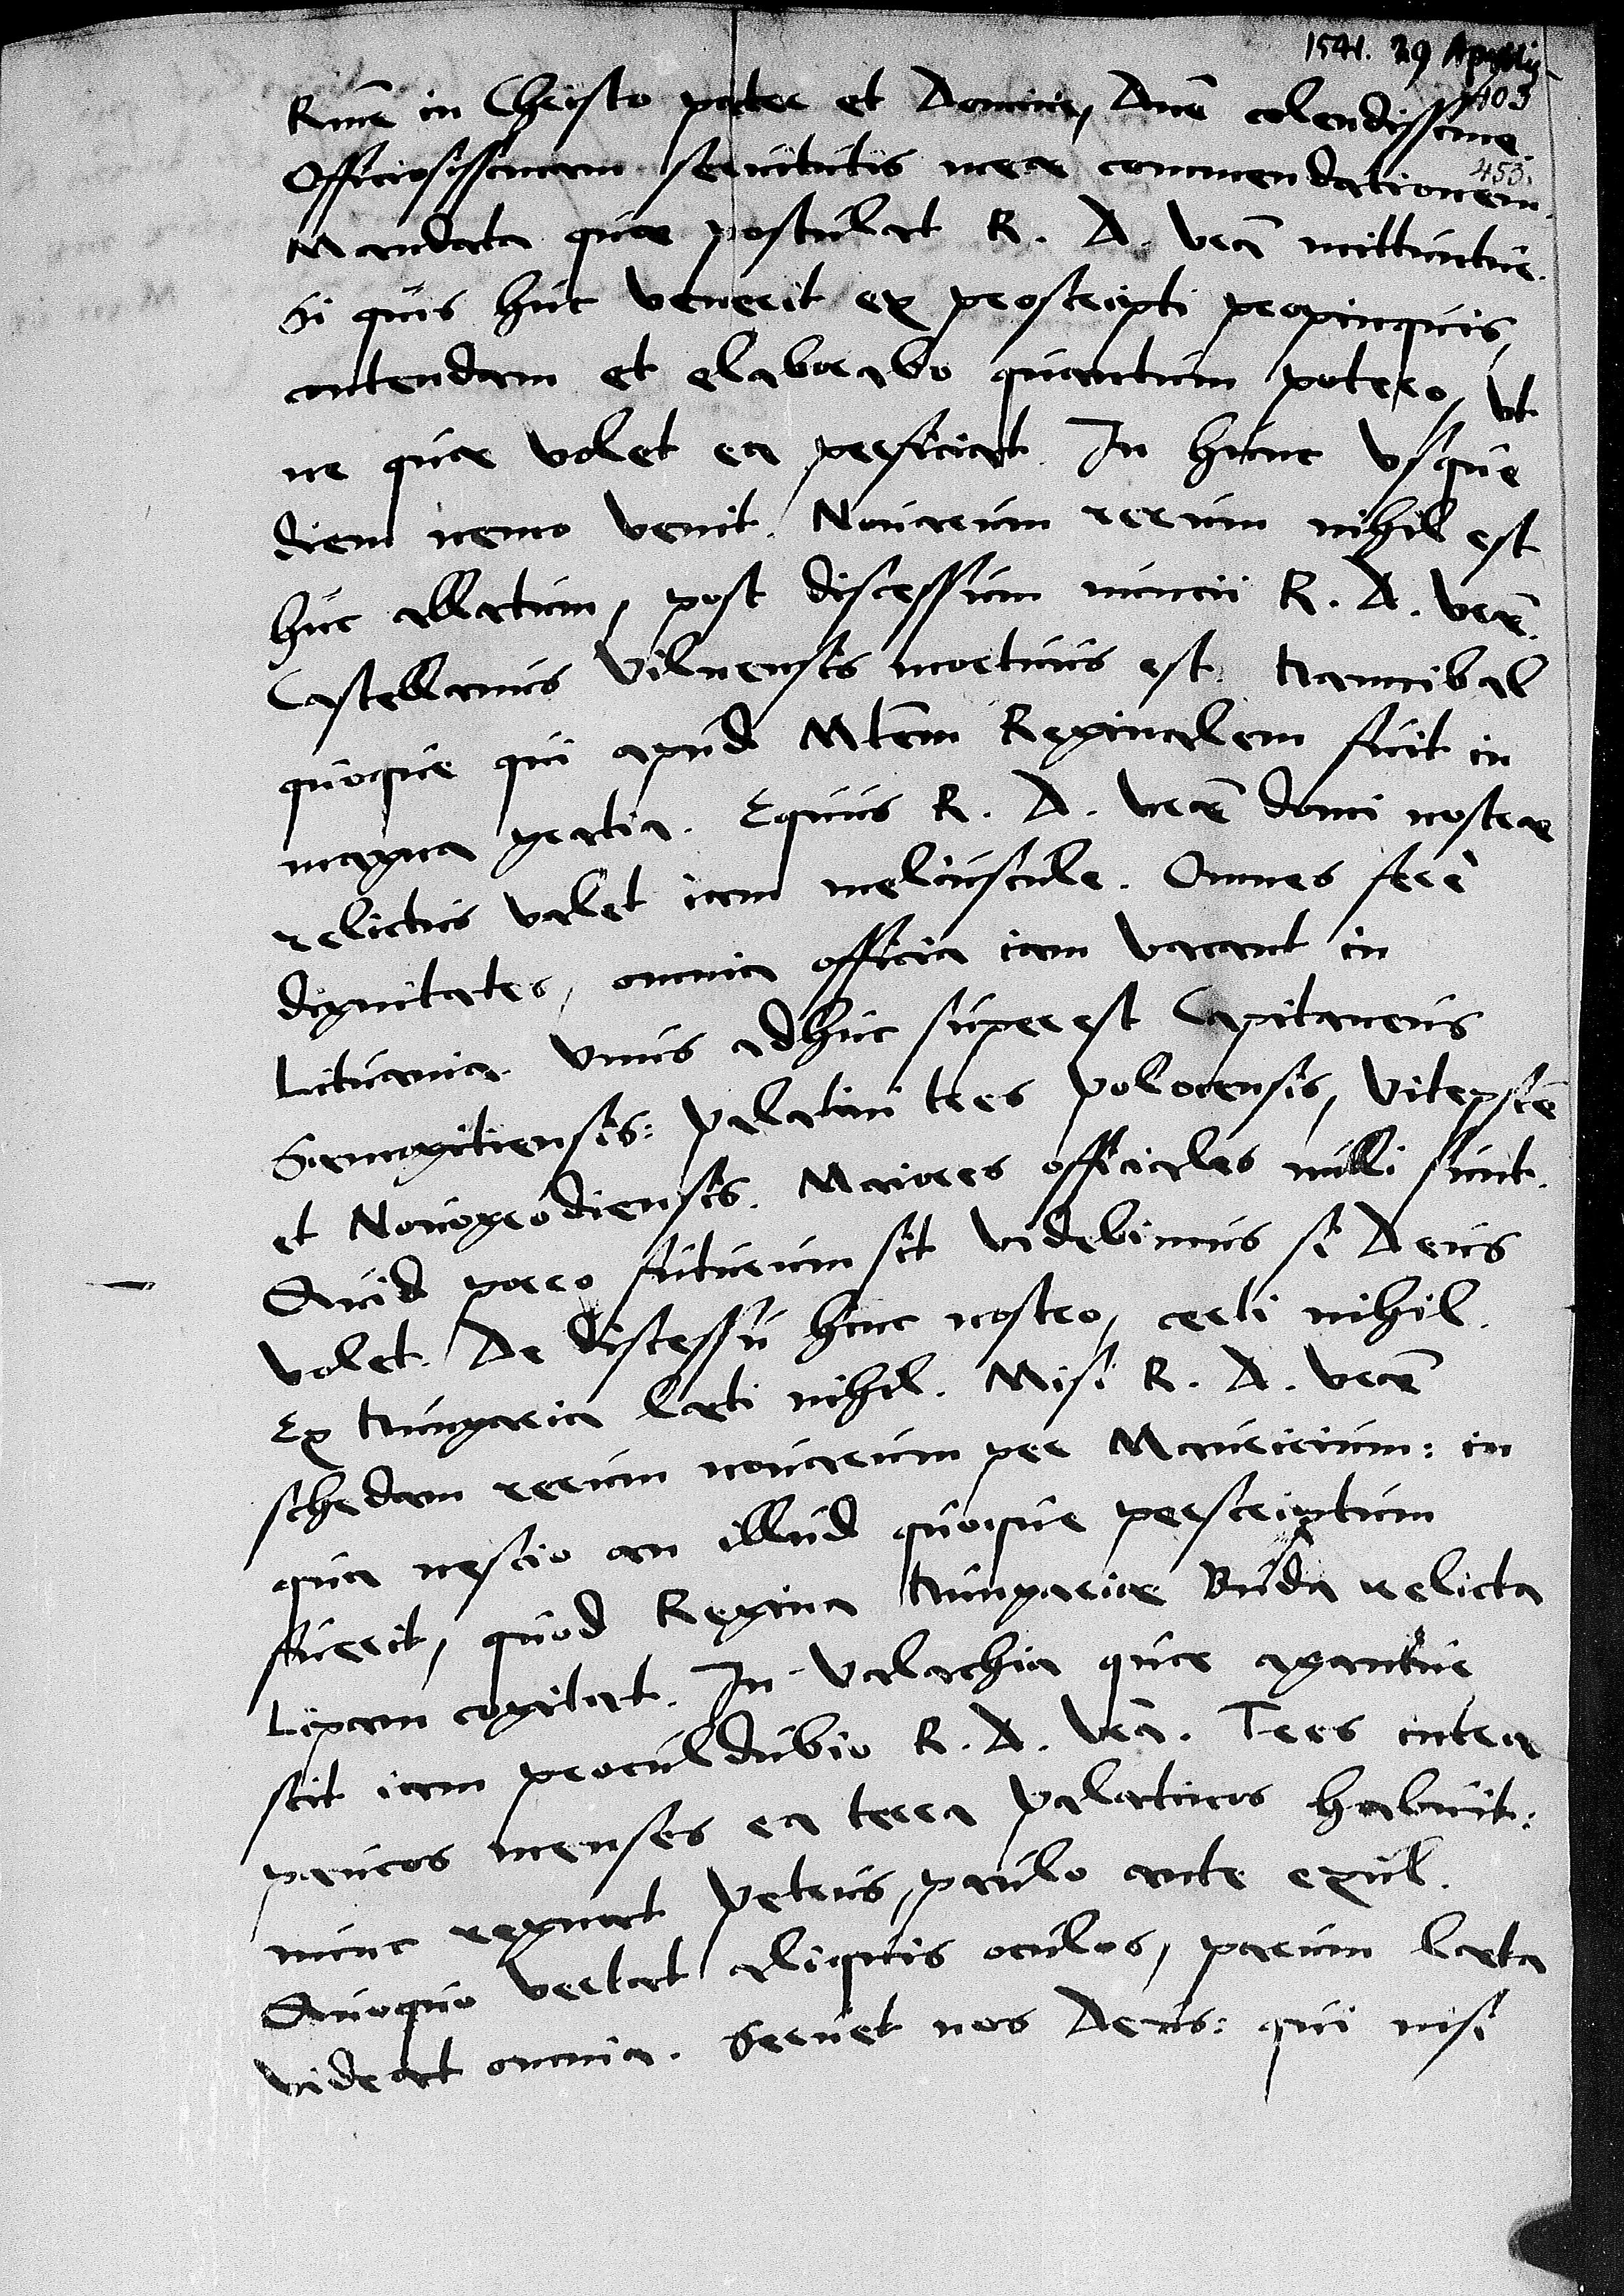 1541. 29 Aprilis
403
Rme in Christo pater et Domine, Dne colendissime
453.
Officiosissimam servitutis meae commendationem.
Mandata quae postulat R. D. Vra mittuntur.
Si quis huc venerit ex proscripti propinquis,
intendam et elaborabo quantum potero, ut
ne quae volet ea perficiat. In hunc usque
diem nemo venit. Novarum rerum nihil est
huc allatum, post discessum nuncii R. D. Vrae.
Castellanus Vilnensis mortuus est. Hannibal
quoque qui apud Mtem Reginalem fuit in
magna gratia. Equus R. D. Vrae domi nostrae
relictus valet iam meliuscule. Omnes ferè
dignitates, omnia officia iam vacant in
Lituania. Unus adhuc superest Capitaneus
Samogitiensis: palatini tres polocensis, Vitepscen
et Novogrodiensis. Maiores officiales nulli sunt.
Quid porro futurum sit videbimus si Deus
volet. De discessu hinc nostro, certi nihil.
Ex Hungaria laeti nihil. Misi R. D. Vrae
schedam rerum novarum per Mauricium: in
qua nescio an illud quoque perscriptum
fuerit, quod Regina Hungariae Buda relicta
Lipam cogitat. In Valachia quae agantur
scit iam proculdubio R. D. Vra. Tres intra
paucos menses ea terra palatinos habuit:
nunc regnat Petrus, paulo ante exul.
Quoquo vertat aliquis oculos, parum laeta
videat omnia. Servet nos Deus: qui nisi